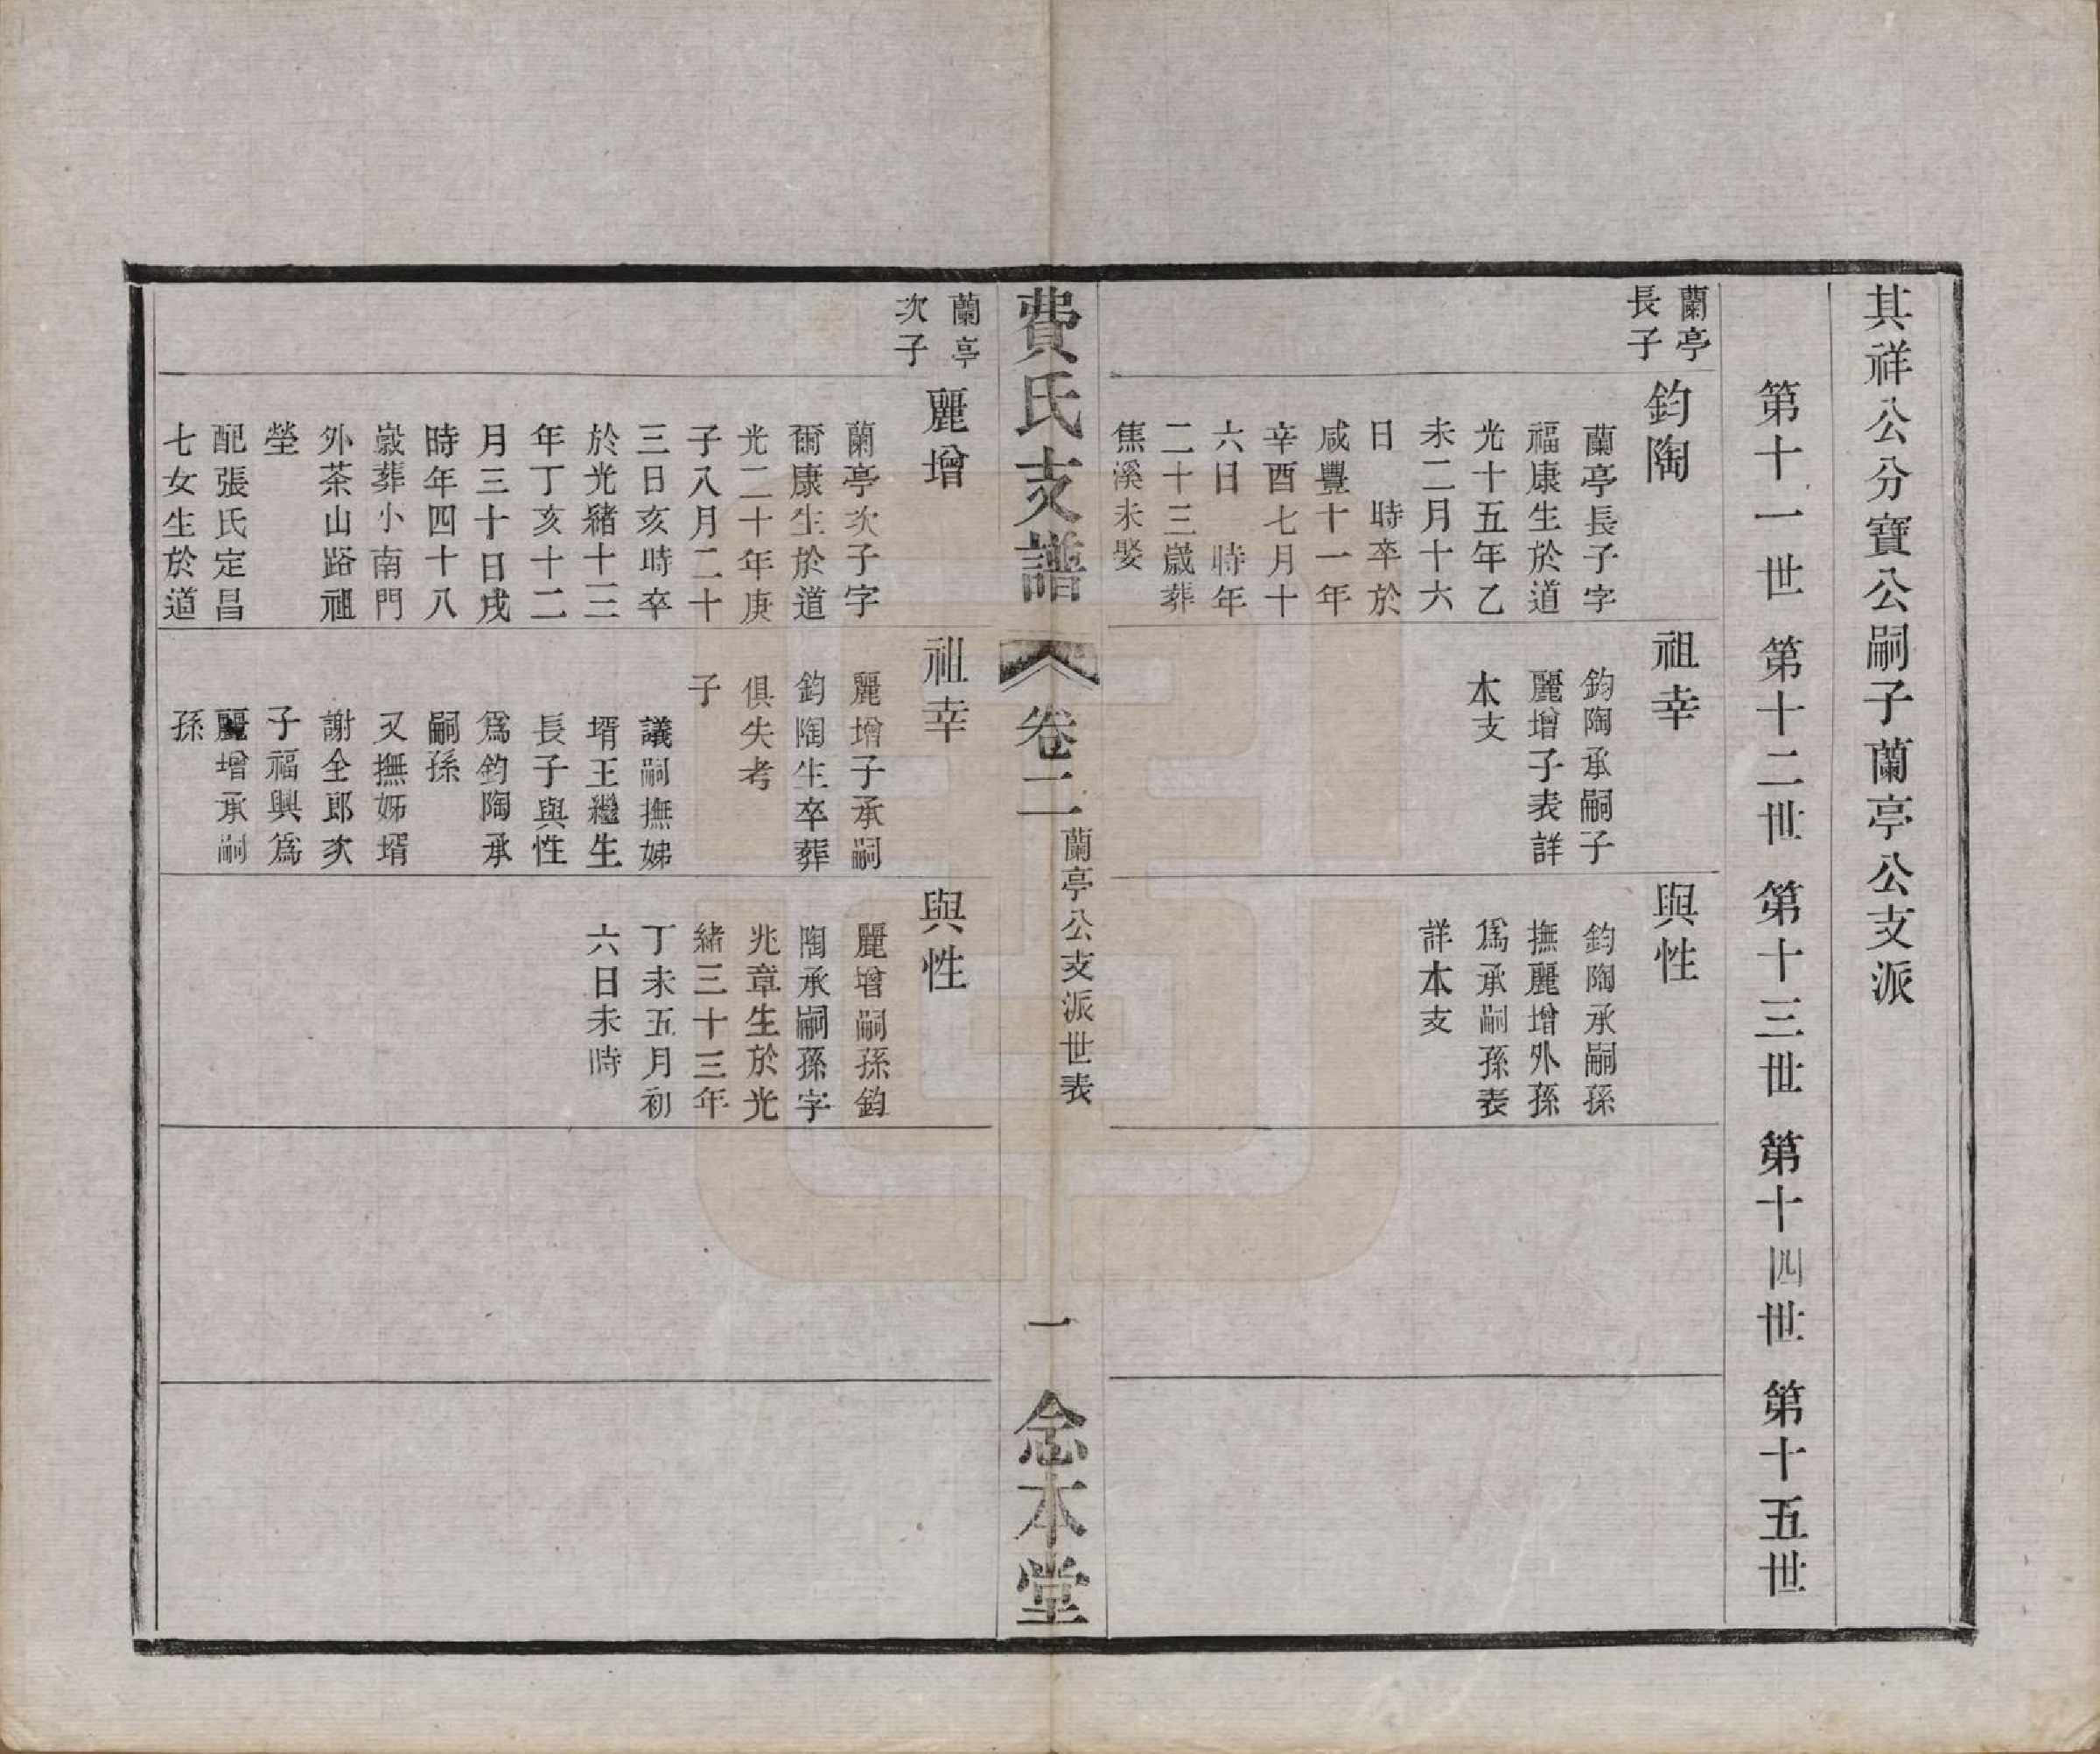 其祥公分寶公嗣子蘭亭公支派
第十一世
第十二世
第十三世
第十四世
第十五世
蘭亭
長子
鈞陶
蘭亭長子字
福康生於道
光十五年乙
未二月十六
日　時卒於
咸豐十一年
辛酉七月十
六日　時年
二十三嵗葬
焦溪未娶
祖幸
鈞陶承嗣子
麗增子表詳
本支
與性
鈞陶承嗣孫
撫麗增外孫
爲承嗣孫表
詳本支
費氏支譜
卷二
蘭亭公支派世表
一
念本堂
蘭亭
次子
麗增
蘭亭次子字
爾康生於道
光二十年庚
子八月二十
三日亥時卒
於光緒十三
年丁亥十二
月三十日戌
時年四十八
嵗葬小南門
外茶山路祖
塋
配張氏定昌
七女生於道
祖幸
麗增子承嗣
鈞陶生卒葬
俱失考
子
議嗣撫娣
壻王繼生
長子與性
爲鈞陶承
嗣孫
又撫姊壻
謝全郎次
子福興爲
麗增承嗣
孫
與性
麗增嗣孫鈞
陶承嗣孫字
兆章生於光
緒三十三年
丁未五月初
六日未時